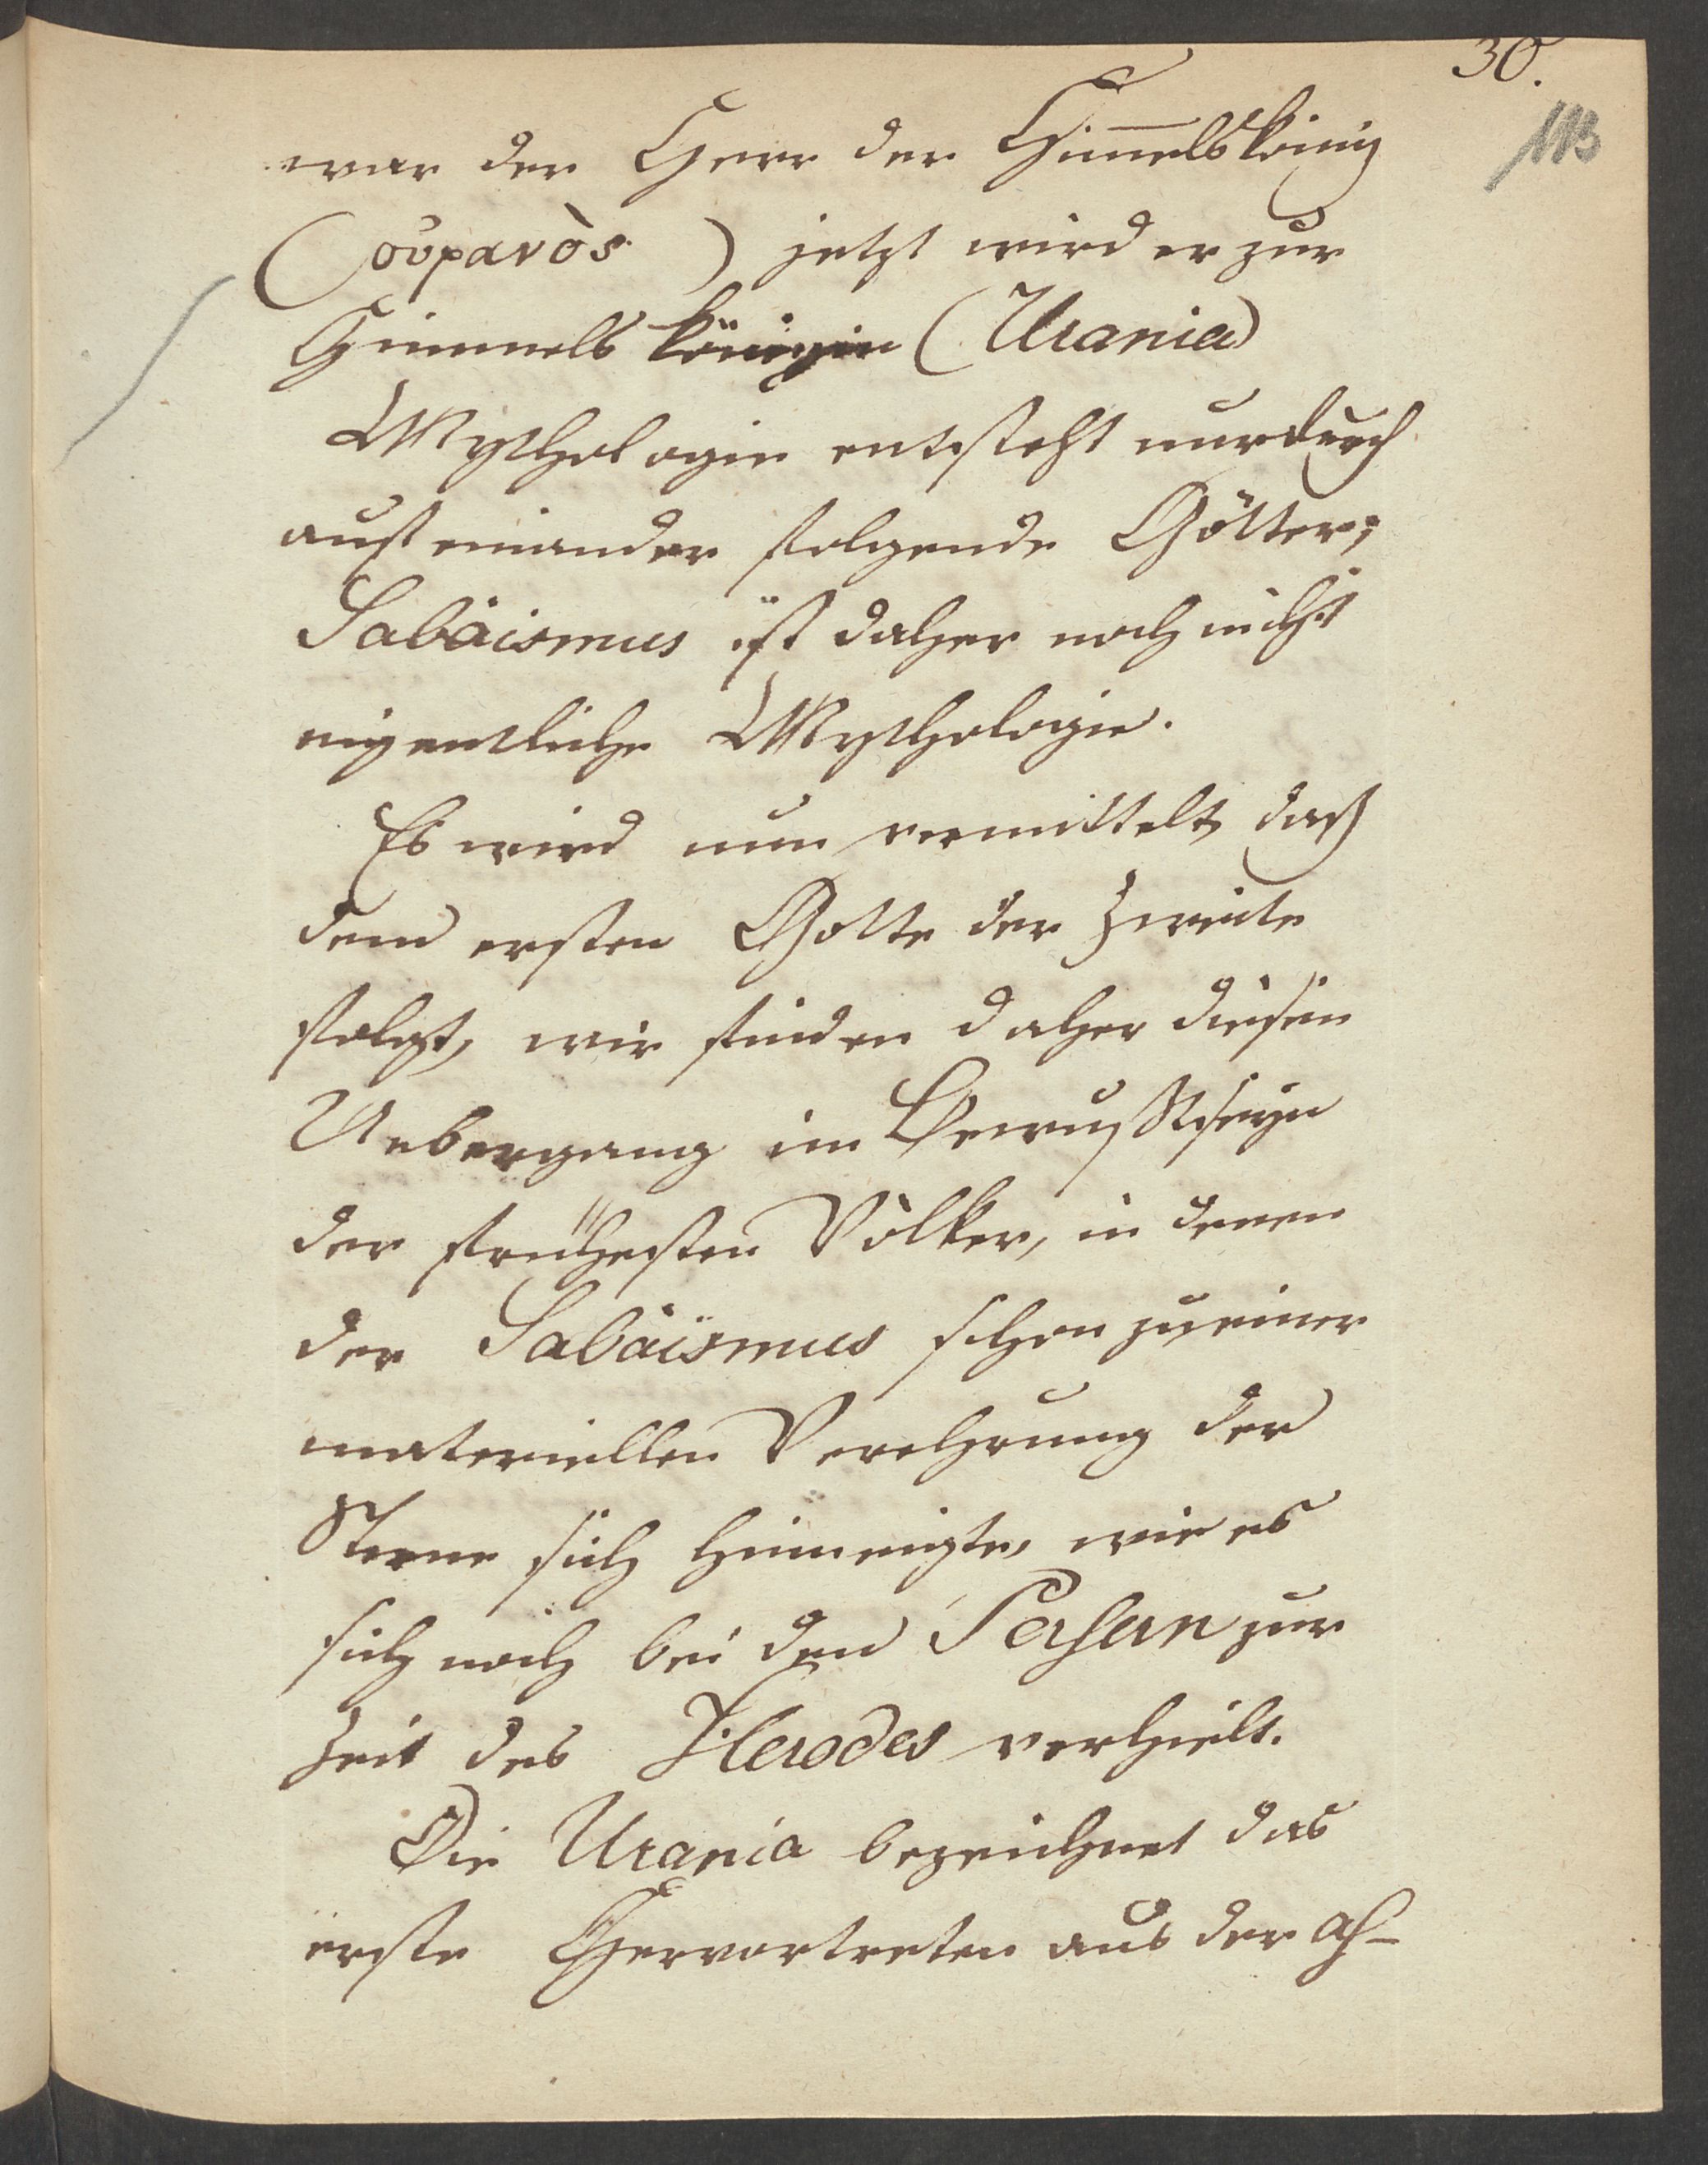 30.
113
war der Herr der Him̅elskönig
(ουρανὸς) jetzt wird er zur
Himmelskönigin (Urania)
Mythologie entsteht nur durch
auf einander folgende Götter;
Sabäismus ist daher noch nicht
eigentliche Mythologie.
Es wird nun vermittelt, daß
dem ersten Gotte der Zweite
folgt, wir finden daher diesen
Uebergang im Bewußtseyn
der frühesten Völker, in denen
der Sabäismus schon zu einer
materiellen Verehrung der
Sterne sich hinneigte, wie es
sich noch bei den Persern zur
Zeit des Herodes verhielt.
Die Urania bezeichnet das
erste Hervortreten aus der ah-